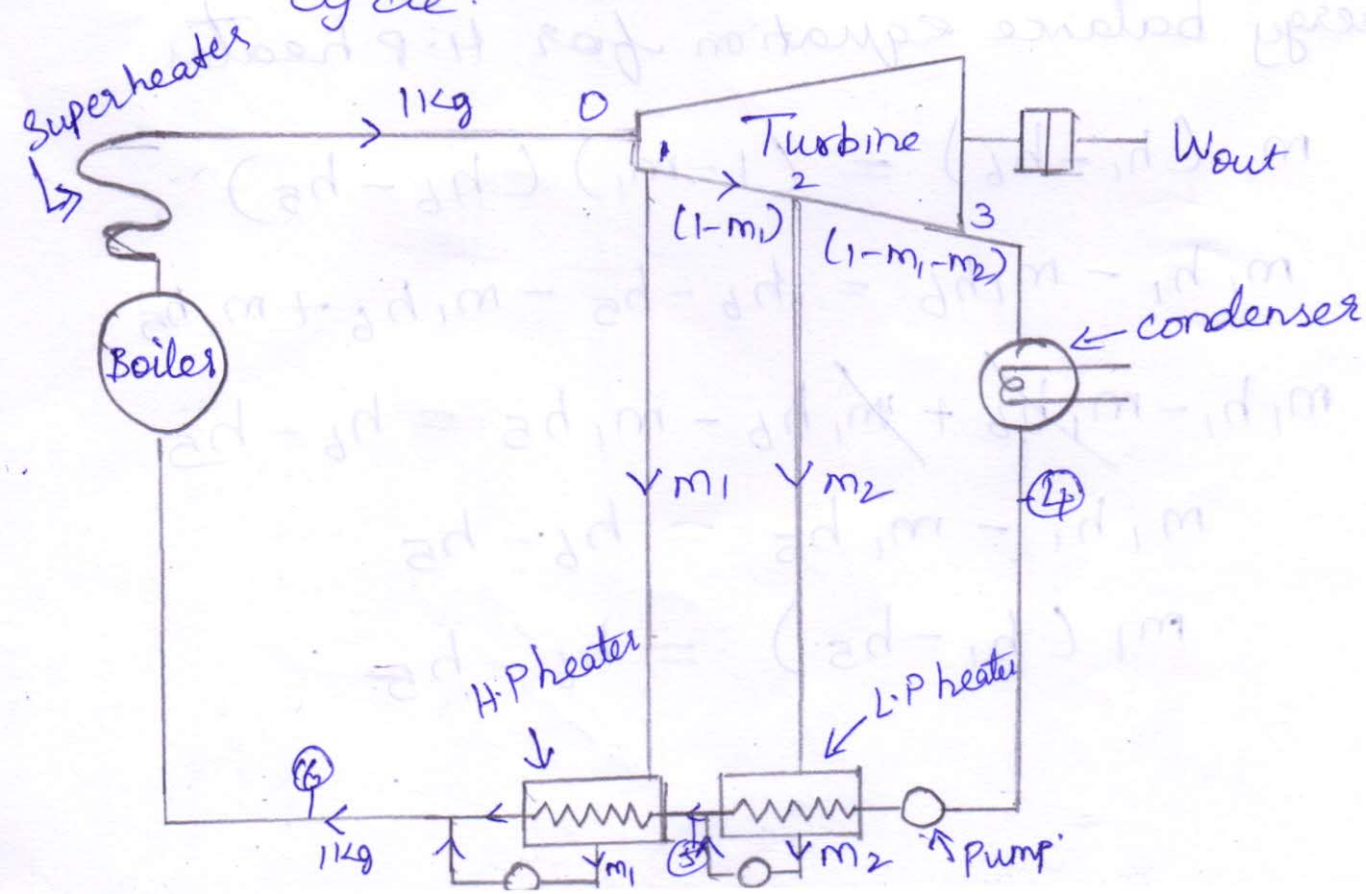 cycle.
Superheater
1Kg
0
1
Turbine
Wout
2
3
(1-m1)
(1-m1-m2)
condenser
Boiler
m1
m2
4
H.P heater
L.P heater
6
1Kg
m1
5
m2
Pump